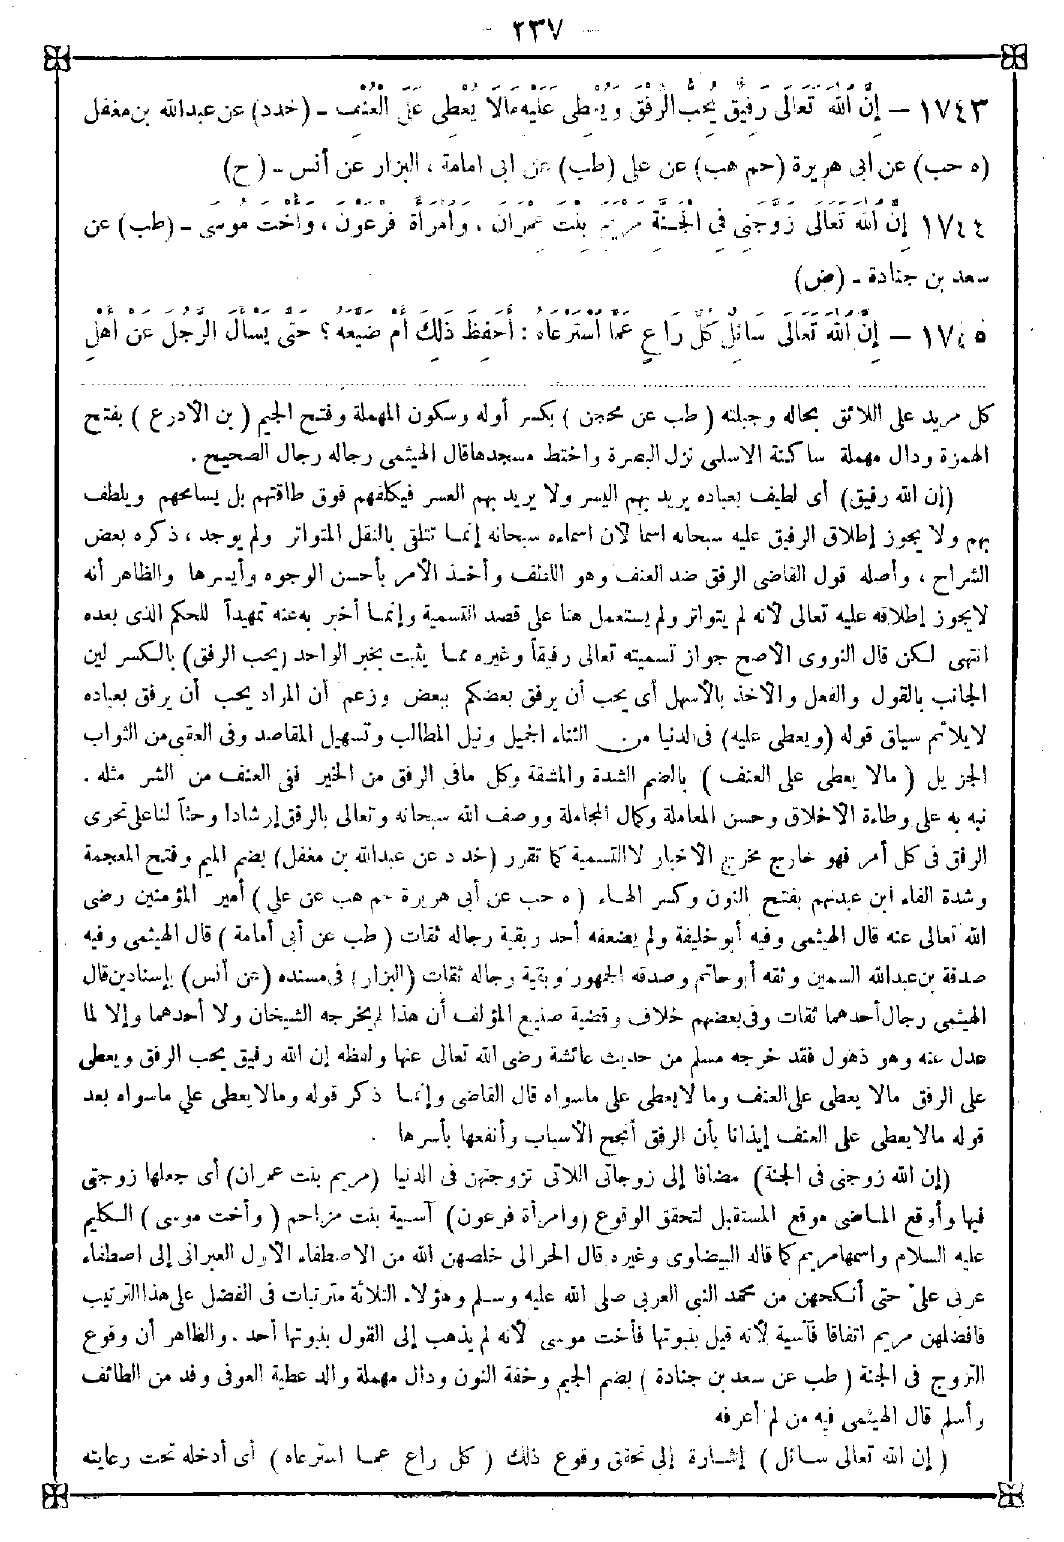 - ٢٣٧ -
١٧٤٣ – إِنَّ اللهَ تَعَالَى رَفِيقٌ يُحِبُّ الرِّفْقَ وَيُعْطِي عَلَيْهِ مَالَا يُعْطِي عَلَى الْعُنْفِ - (خدد) عن عبدالله بن مغفل
(ه حب) عن ابى هريرة (حم هب) عن على (طب) عن ابى امامة ، البزار عن أنس - (ح)
١٧٤٤ إِنَّ اللهَ تَعَالَى زَوَّجَنِي فِي الْجَنَّةِ مَرْيَمَ بِنْتَ عِمْرَانَ ، وَامْرَأَةَ فِرْعَوْنَ ، وَأُخْتَ مُوسَى - (طب) عن
سعد بن جنادة - (ض)
١٧٤٥ – إِنَّ اللهَ تَعَالَى سَائِلٌ كُلَّ رَاعٍ عَمَّا اسْتَرْعَاهُ : أَحَفِظَ ذَلِكَ أَمْ ضَيَّعَهُ ؟ حَتَّى يَسْأَلَ الرَّجُلَ عَنْ أَهْلِ
كل مريد على اللائق بحاله وجبلته ( طب عن محجن ) بكسر أوله وسكون المهملة وفتح الجيم ( بن الأدرع ) بفتح
الهمزة ودال مهملة ساكنة الاسلمى نزل البصرة واختط مسجدها قال الهيثمى رجاله رجال الصحيح .
(إن الله رفيق) أى لطيف بعباده يريد بهم اليسر ولا يريد بهم العسر فيكلفهم فوق طاقتهم بل يسامحهم ويلطف
بهم ولا يجوز إطلاق الرفيق عليه سبحانه اسما لأن اسماءه سبحانه إنما تتلقى بالنقل المتواتر ولم يوجد ، ذكره بعض
الشراح ، وأصله قول القاضى الرفق ضد العنف وهو اللطف وأخذ الأمر بأحسن الوجوه وأيسرها والظاهر أنه
لايجوز إطلاقه عليه تعالى لأنه لم يتواتر ولم يستعمل هنا على قصد التسمية وإنما أخبر به عنه تمهيداً للحكم الذى بعده
انتهى لكن قال النووى الأصح جواز تسميته تعالى رفيقاً وغيره مما يثبت بخبر الواحد (يحب الرفق) بالكسر لين
الجانب بالقول والفعل والاخذ بالأسهل أى يحب أن يرفق بعضكم ببعض وزعم أن المراد يحب أن يرفق بعباده
لايلائم سياق قوله (ويعطى عليه) فى الدنيا من الثناء الجميل ونيل المطالب وتسهيل المقاصد وفى العقبى من الثواب
الجزيل ( مالا يعطى على العنف ) بالضم الشدة والمشقة وكل مافى الرفق من الخير ففى العنف من الشر مثله .
نبه به على وطاءة الأخلاق وحسن المعاملة وكمال المجاملة ووصف الله سبحانه وتعالى بالرفق إرشادا وحثاً لنا على تحرى
الرفق فى كل أمر فهو خارج مخرج الاخبار لا التسمية كما تقرر (خد د عن عبدالله بن مغفل) بضم الميم وفتح المعجمة
وشدة الفاء ابن عبدنهم بفتح النون وكسر الهاء ( ه حب عن أبى هريرة حم هب عن على ) أمير المؤمنين رضى
الله تعالى عنه قال الهيثمى وفيه أبو خليفة ولم يضعفه أحد وبقية رجاله ثقات ( طب عن أبى أمامة ) قال الهيثمى وفيه
صدقة بن عبدالله السمين وثقه أبو حاتم وضعفه الجمهور وبقية رجاله ثقات (البزار) فى مسنده (عن أنس) بإسنادين قال
الهيثمى رجال أحدهما ثقات وفى بعضهم خلاف وقضية صنيع المؤلف أن هذا لم يخرجه الشيخان ولا أحدهما وإلا لما
عدل عنه وهو ذهول فقد خرجه مسلم من حديث عائشة رضى الله تعالى عنها ولفظه إن الله رفيق يحب الرفق ويعطى
على الرفق مالا يعطى على العنف وما لايعطى على ماسواه قال القاضى وإنما ذكر قوله ومالا يعطى على ماسواه بعد
قوله مالا يعطى على العنف إيذانا بأن الرفق أنجح الأسباب وأنفعها بأسرها .
(إن الله زوجنى فى الجنة) مضافا إلى زوجاتى اللاتى تزوجتهن فى الدنيا (مريم بنت عمران) أى جعلها زوجتى
فيها وأوقع الماضى موقع المستقبل لتحقق الوقوع (وامرأة فرعون) آسية بنت مزاحم ( وأخت موسى ) الكليم
عليه السلام واسمها مريم كما قاله البيضاوى وغيره قال الحرالى خلصهن الله من الاصطفاء الأول العبرانى إلى اصطفاء
عربى علىّ حتى أنكحهن من محمد النبى العربى صلى الله عليه وسلم وهؤلاء الثلاثة مترتبات فى الفضل على هذا الترتيب
فأفضلهن مريم اتفاقا فآسية لأنه قيل بنبوتها فأخت موسى لأنه لم يذهب إلى القول بنبوتها أحد . والظاهر أن وقوع
التزوج فى الجنة ( طب عن سعد بن جنادة ) بضم الجيم وخفة النون ودال مهملة والد عطية العوفى وفد من الطائف
وأسلم قال الهيثمى فيه من لم أعرفه
( إن الله تعالى سائل ) إشارة إلى تحقق وقوع ذلك ( كل راع عما استرعاه ) أى أدخله تحت رعايته